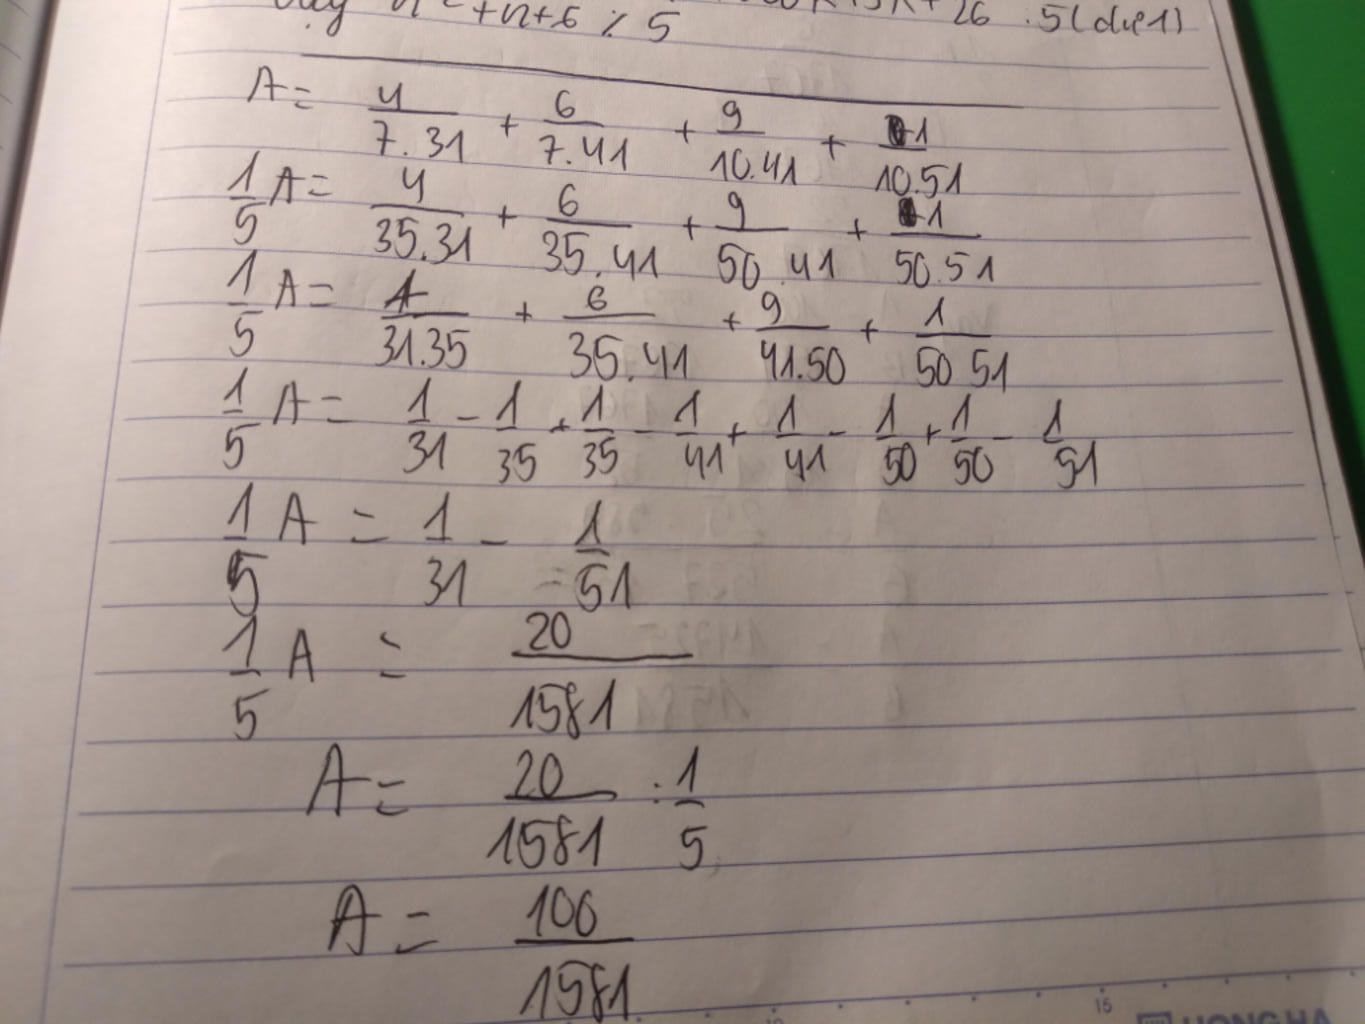 n² + n + 6 ⋮̸ 5 + 26 : 5 (
A = 4/7.31 + 6/7.41 + 9/10.41 + 1/10.51
1/5 A = 4/35.31 + 6/35.41 + 9/50.41 + 1/50.51
1/5 A = 4/31.35 + 6/35.41 + 9/41.50 + 1/50 51
1/5 A = 1/31 - 1/35 + 1/35 - 1/41 + 1/41 - 1/50 + 1/50 - 1/51
1/5 A = 1/31 - 1/51
1/5 A = 20/1581
A = 20/1581 : 1/5
A = 100/1581
15
HONG HA